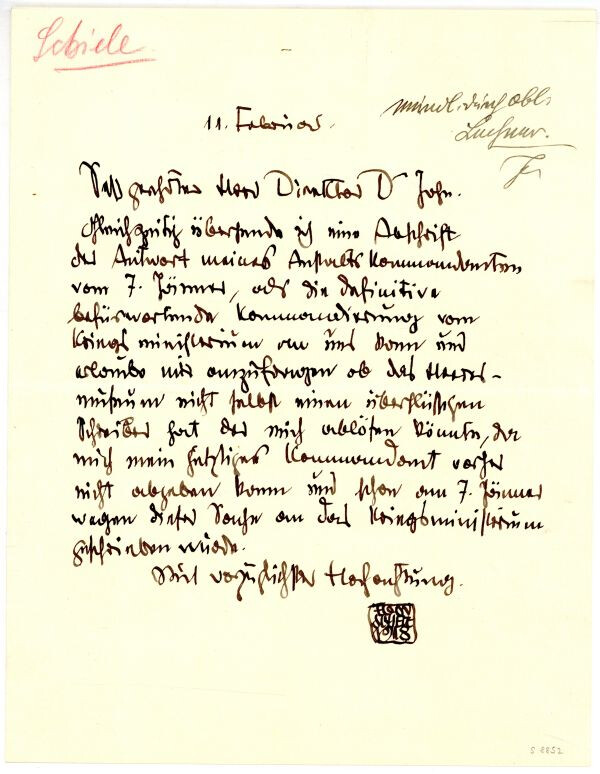 Schiele
mündl. durch Obl.
11. Februar.
Sehr geehrter Herr Direktor Dr John.
Gleichzeitig übersende ich eine Abschrift
der Antwort meines Anstalts Kommandanten
vom 7. Jänner, als die definitive
befürwortende Kommandierung vom
Kriegs ministerium an uns kam und
erlaube mir anzufragen ob das Heeres-
museum nicht selbst einen überflüssigen
Schreiber hat der mich ablösen könnte, da
mich mein jetziges Kommandant vorher
nicht abgeben kann und schon am 7. Jänner
wegen dieser Sache an das Kriegsministerium
geschrieben wurde.
Mit vorzüglichster Hochachtung.
EGON
SCHIELE
1918
S 8852